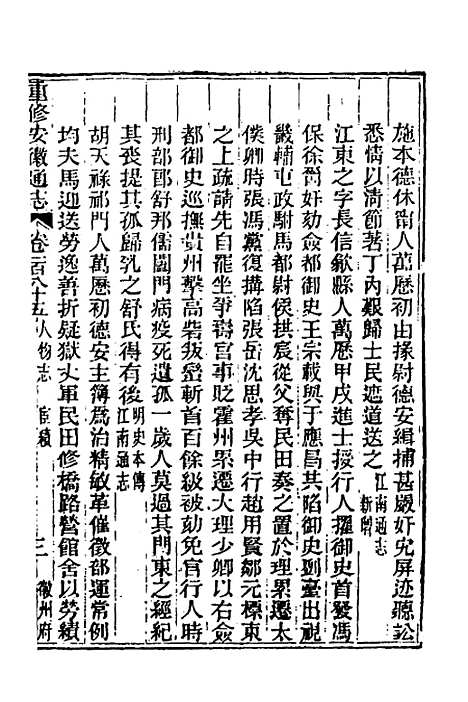 施本德休甯人萬歷初由掾尉德安緝捕甚嚴奸宄屏迹聽訟
悉情以淸節著丁內艱歸士民遮道送之江南通志 新輯
江東之字長信歙縣人萬歷甲戌進士授行人擢御史首發馮
保徐爵奸劾僉都御史王宗載與于應昌共陷御史劉臺出視
畿輔屯政駙馬都尉侯拱宸從父奪民田奏之置於理累遷太
僕卿時張馮黨復搆陷張岳沈思孝吳中行趙用賢鄒元標東
之上疏請先自罷坐爭壽宮事貶霍州累遷大理少卿以右僉
都御史巡撫貴州擊高砦拔巒斬首百餘級被劾免官行人時
刑部郎舒邦儒闔門病疫死遺孤一歲人莫過其門東之經紀
其喪提其孤歸乳之舒氏得有後明史本傳 江南通志
胡天祿祁門人萬歷初德安主簿爲治精敏革催徵部運常例
均夫馬迎送勞逸善折疑獄丈軍民田修橋路營館舍以勞績
重修安徽通志 卷一百八十五 人物志 宦績 三 徽州府